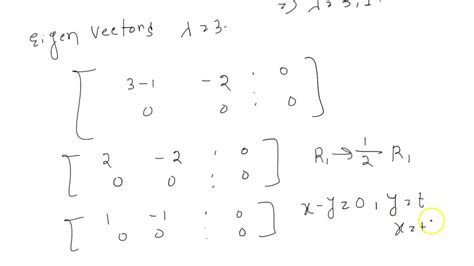 =) λ = 3, 1.
Eigen vectors λ = 3.
[ 3-1 -2 : 0
0 0 : 0 ]
[ 2 -2 : 0
0 0 : 0 ] R₁ → 1/2 R₁
[ 1 -1 : 0
0 0 : 0 ] x-y=0, y=t
x=t